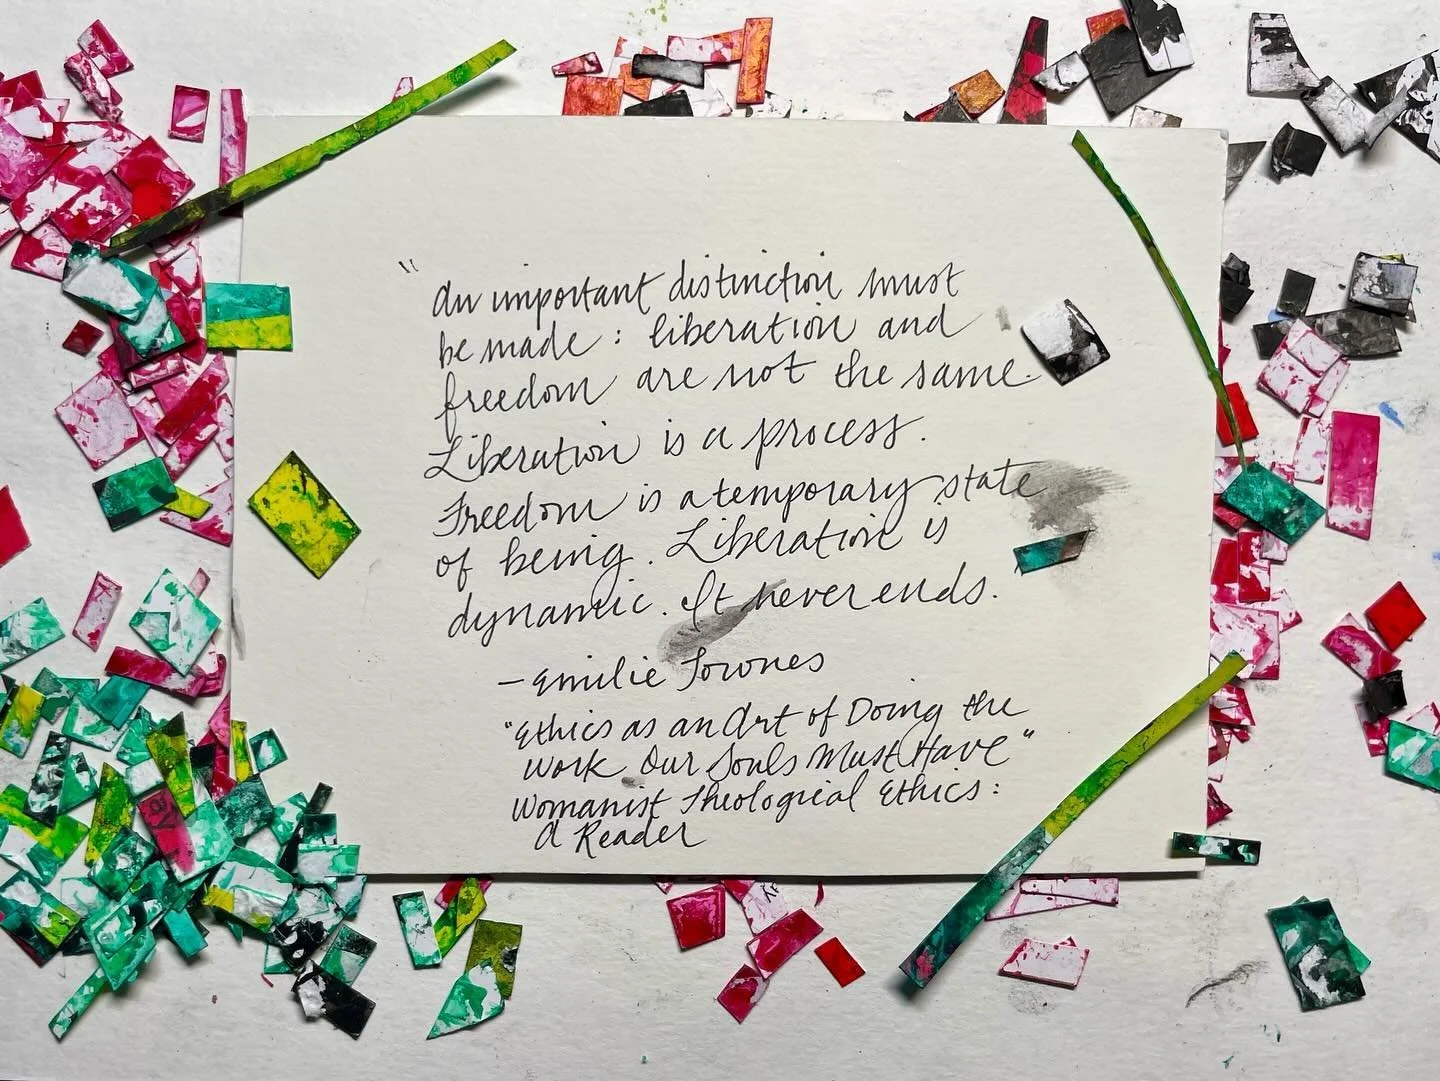 "An important distinction must
be made: liberation and
freedom are not the same.
Liberation is a process.
Freedom is a temporary state
of being. Liberation is
dynamic. It never ends.
- Emilie Townes
"Ethics as an Art of Doing the
Work Our Souls Must Have"
Womanist Theological Ethics:
A Reader